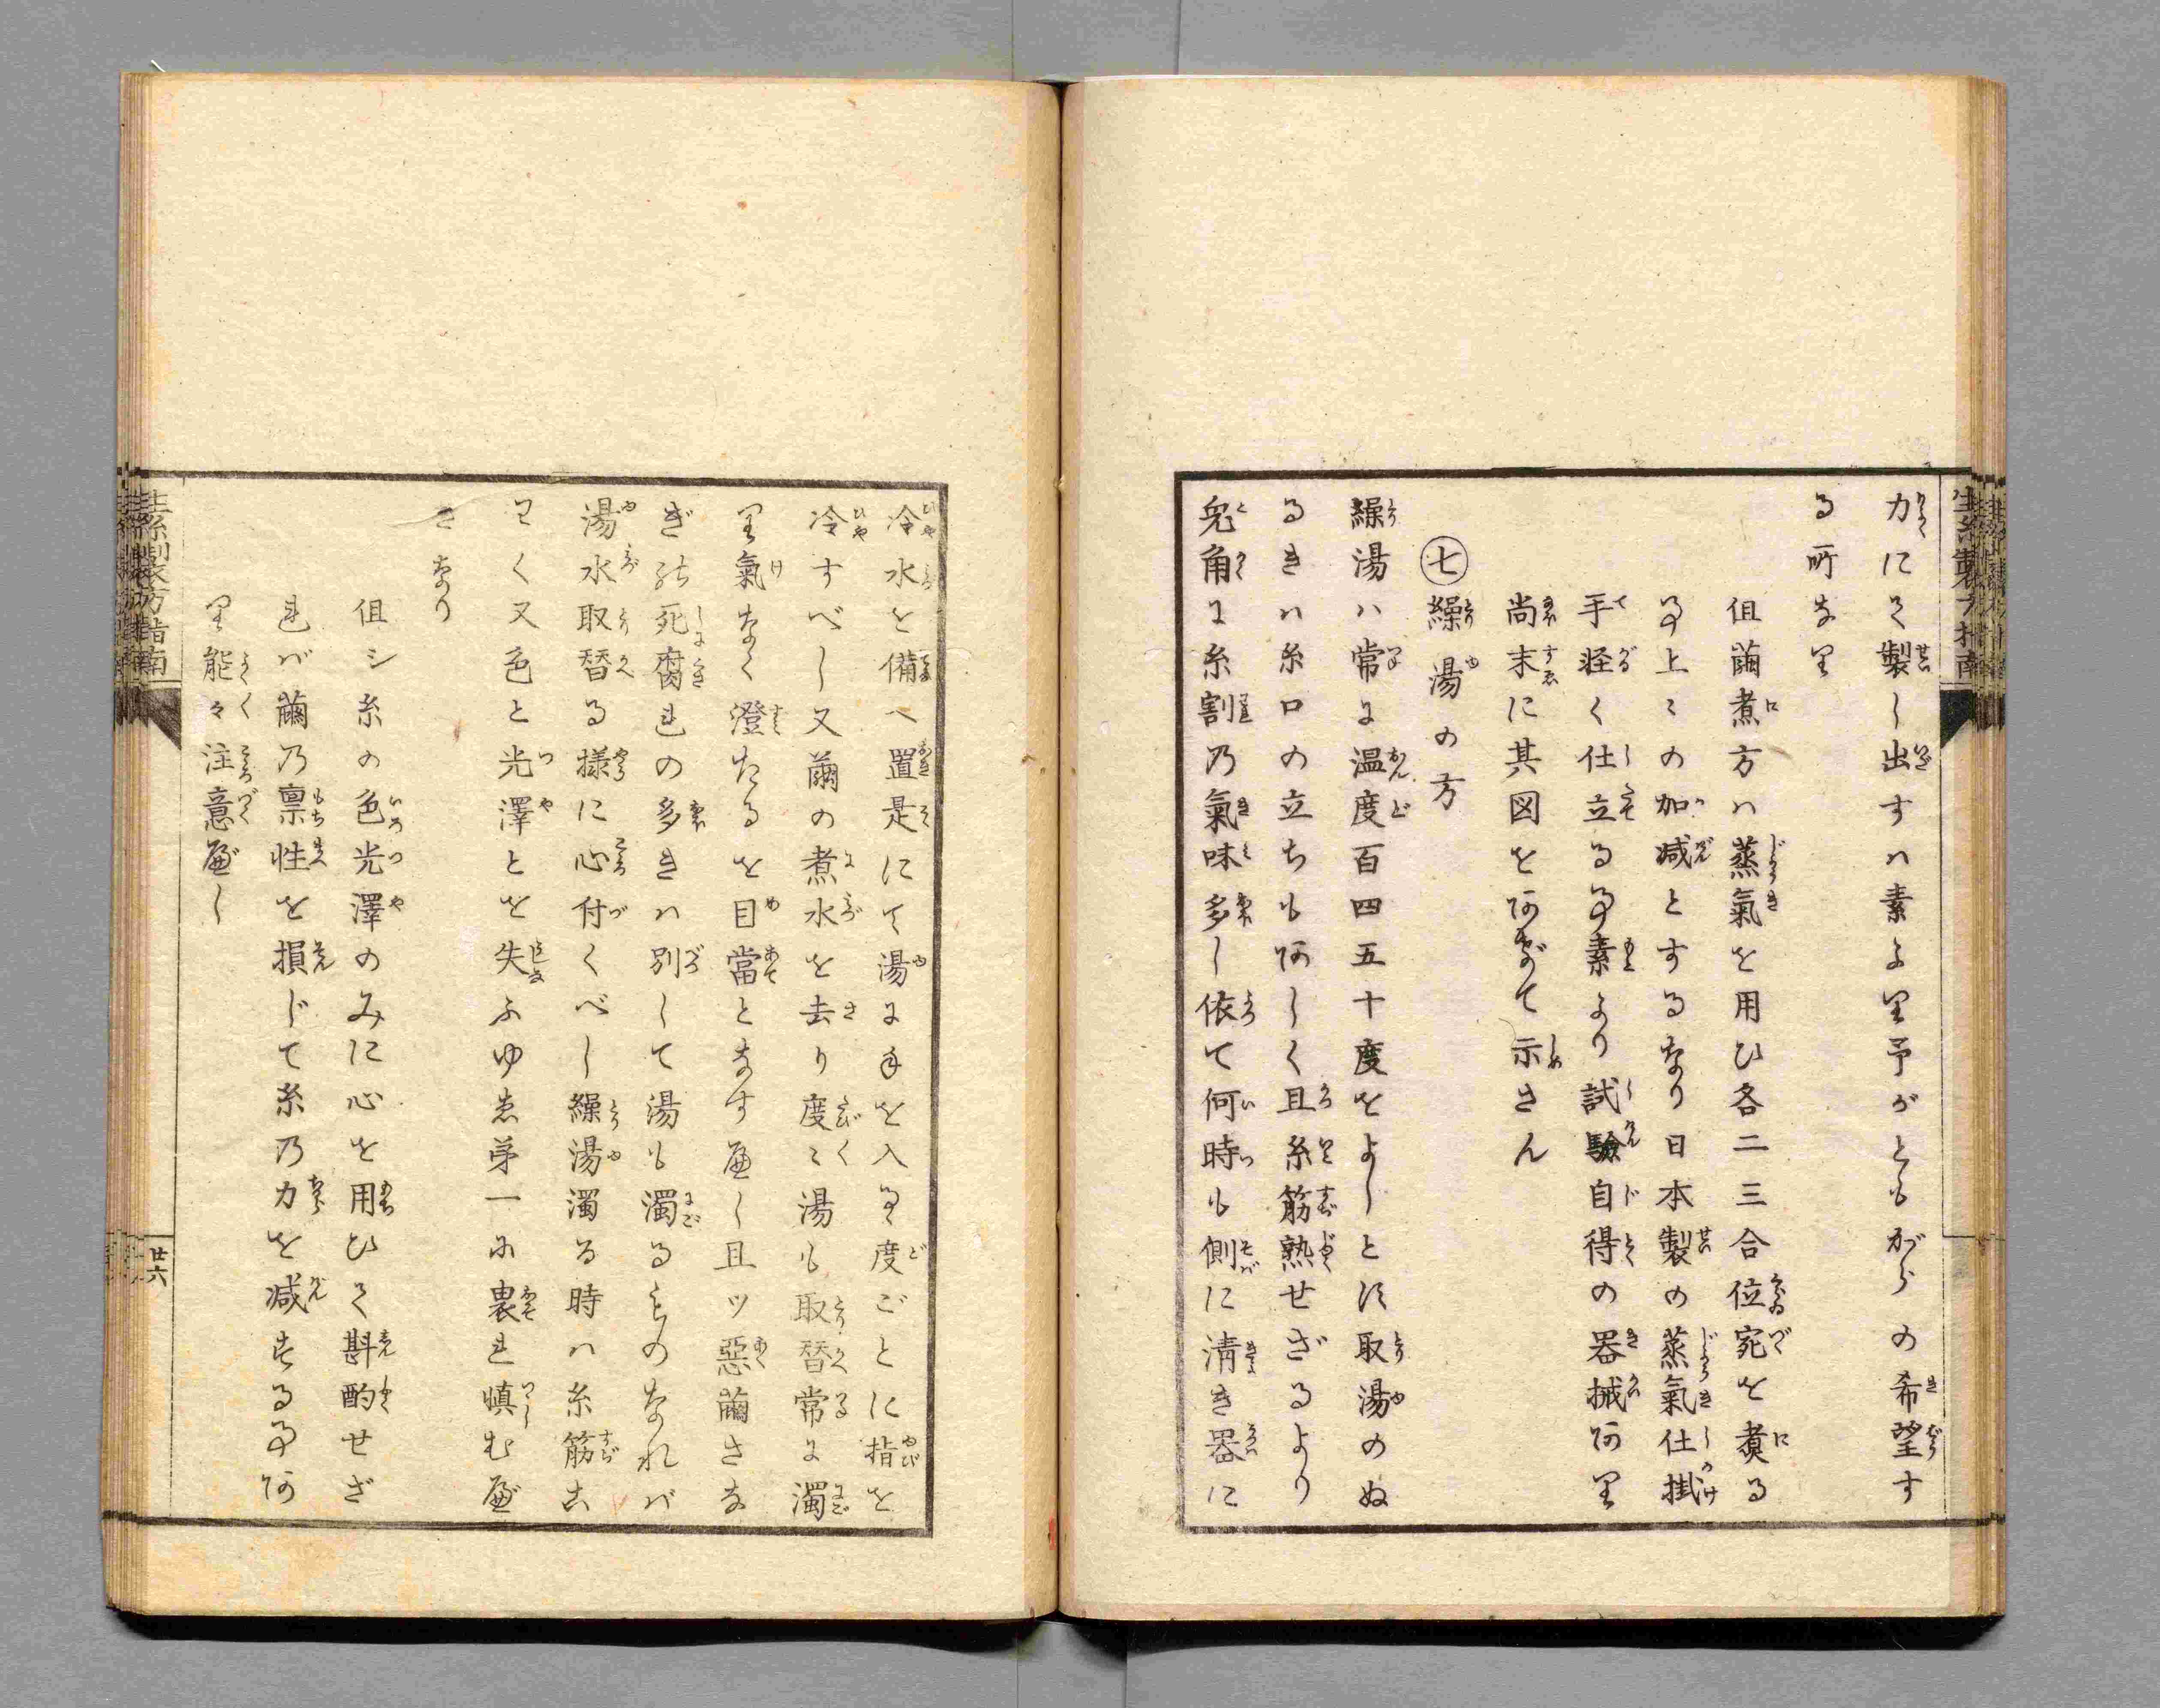 力にて製し出すは素より予がともがらの希望す
る所なり
但繭煮方ハ蒸氣を用ひ各二三合位宛を煑る
事上々の加减とするなり日本製の蒸氣仕掛
手軽く仕立る事素より試驗自得の器械あり
尚末に其図をあげて示さん
㊆繰湯の方
繰湯ハ常に温度百四五十度をよしとす取湯のぬ
るきハ糸口の立ちもあしく且糸筋熟せざるより
兎角に糸割の氣味多し依て何時も側に清き器に
生糸製方指南
冷水を備へ置是にて湯に手を入る度ごとに指を
冷すべし又繭の煮水を去り度々湯も取替常に濁
り氣なく澄たるを目當となすべし且ツ惡繭さな
ぎの死腐れの多きハ別して湯も濁るものなれバ
湯水取替る様に心付くべし繰湯濁る時ハ糸筋古
りく又色と光澤とを失ふゆゑ第一に畏れ慎むべ
きなり
但シ糸の色光澤のみに心を用ひて斟酌せざ
れバ繭の禀性を損じて糸の力を减ずる事あ
り能々注意べし
生糸製方指南
廿六